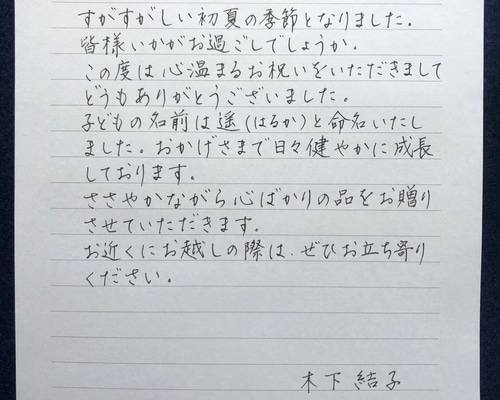 すがすがしい初夏の季節となりました。
皆様いかがお過ごしでしょうか。
この度は心温まるお祝いをいただきまして
どうもありがとうございました。
子どもの名前は遥(はるか)と命名いたし
ました。おかげさまで日々健やかに成長
しております。
ささやかながら心ばかりの品をお贈り
させていただきます。
お近くにお越しの際は、ぜひお立ち寄り
ください。
木下 結子